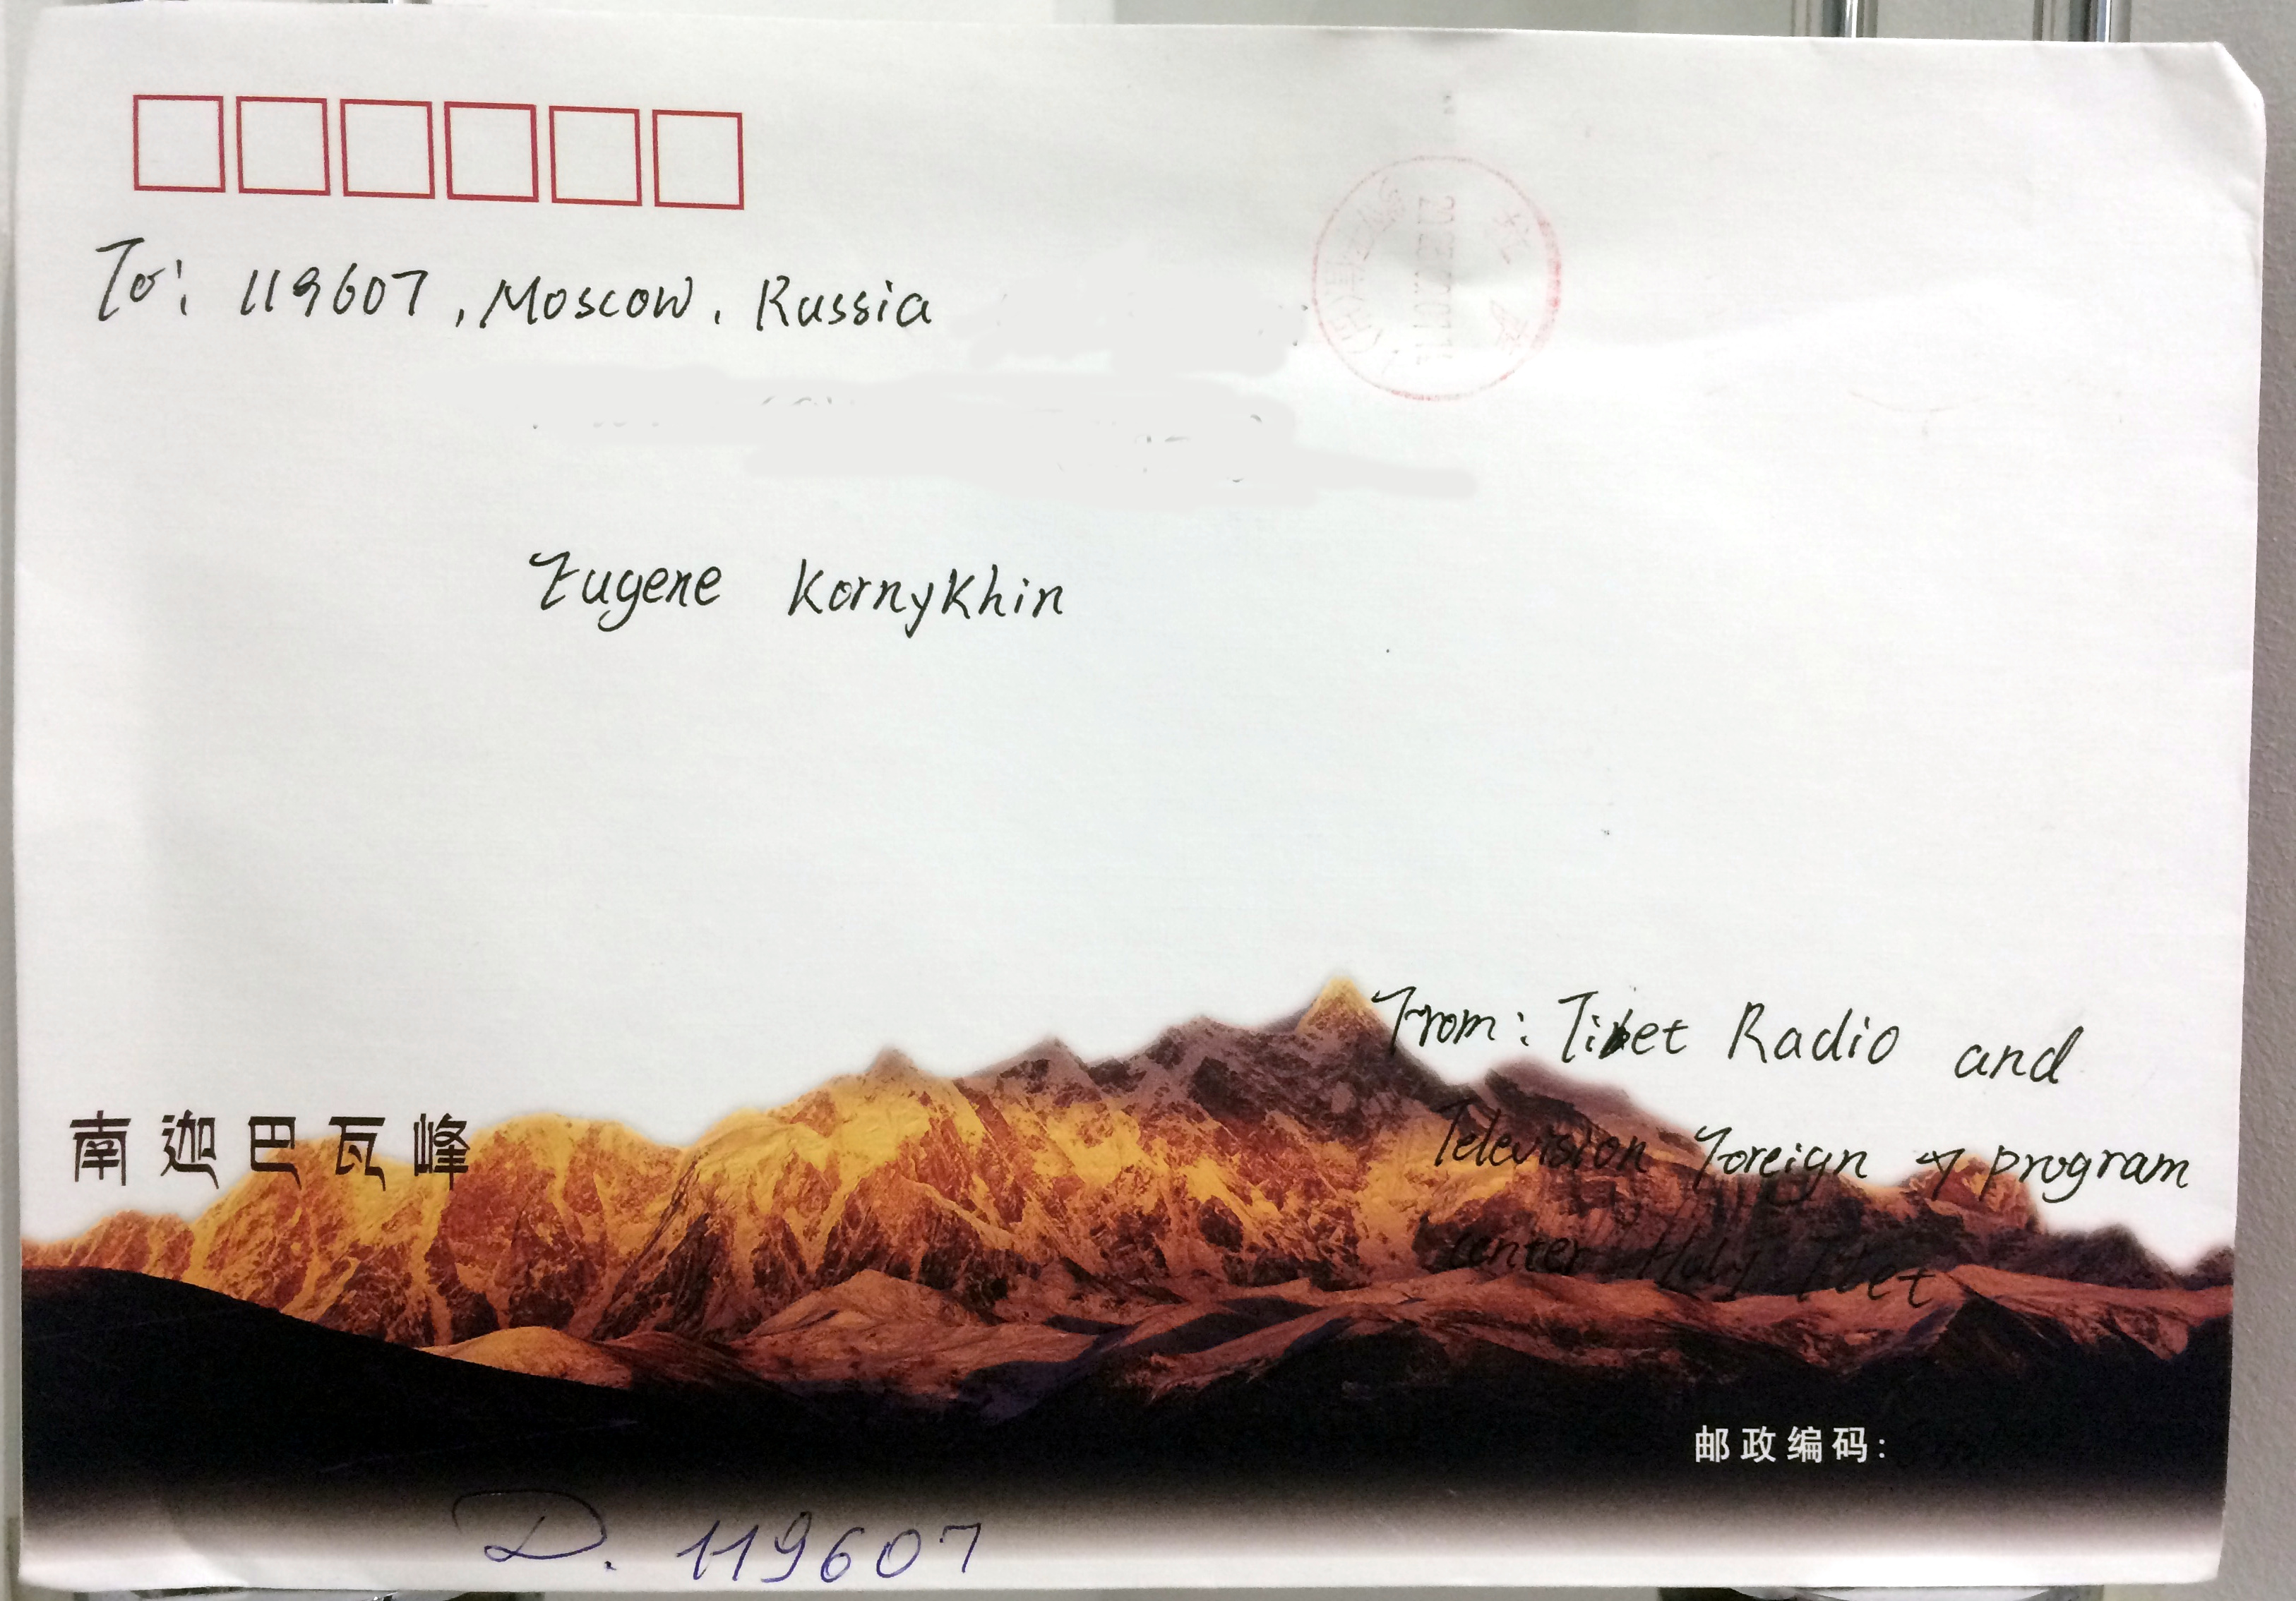 To: 119607, Moscow, Russia
Eugene Kornykhin
From: Tibet Radio and
Television Foreign program
center Holy Tibet
南迦巴瓦峰
邮政编码:
D. 119607